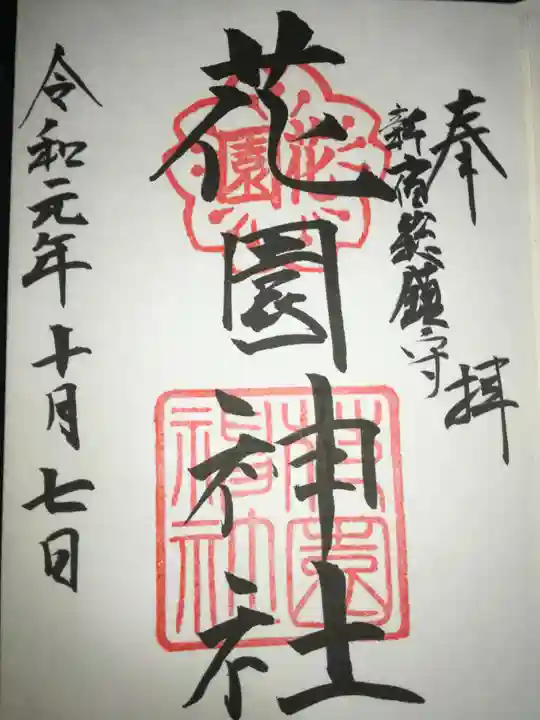 奉拝
新宿総鎮守
花園神社
花園
花園神社
令和元年十月七日